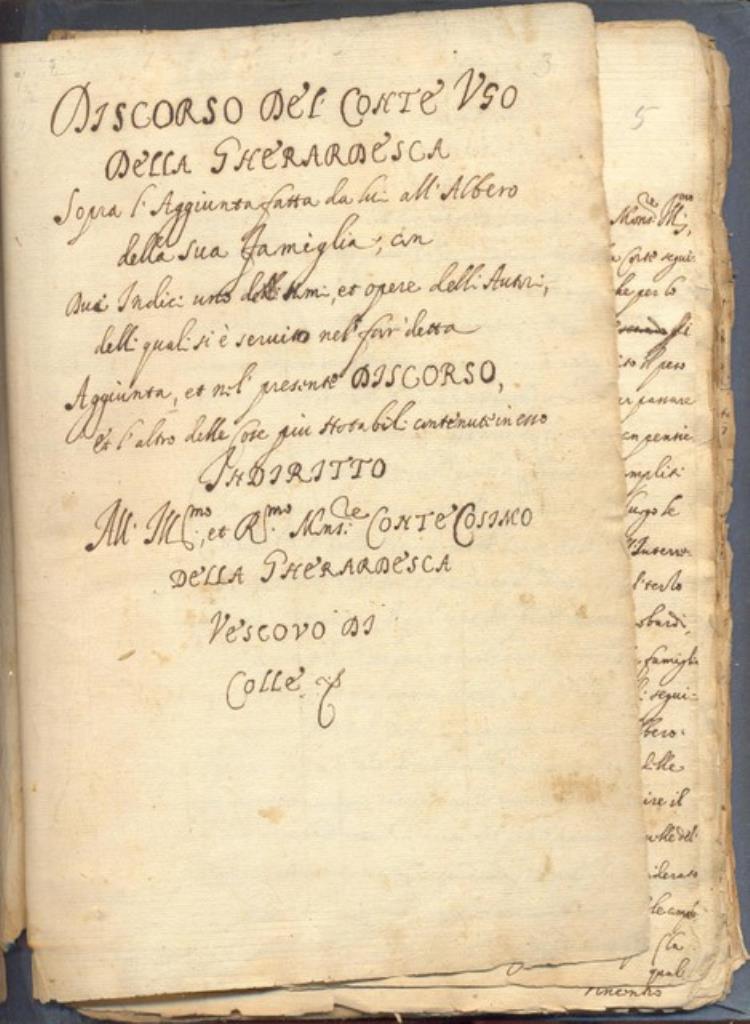 3
DISCORSO DEL CONTE VGO
DELLA GHERARDESCA
Sopra l'Aggiunta fatta da lui all'Albero
della sua famiglia, con
Due Indici uno delli nomi, et opere delli Autori,
delli quali si è seruito nel far detta
Aggiunta, et nel presente DISCORSO,
et l'altro delle cose piu notabili contenute in esso
INDIRITTO
All' Ill.mo, et R.mo Mons.re CONTE COSIMO
DELLA GHERARDESCA
VESCOVO DI
Colle
5
Mons.re Ill.mo
Corte segui-
he per lo
il peso
er passare
mpliti
luogo le
l'Interro-
sbardi,
famigli
segui-
lbero
delle
ire il
iderato
le
la
quali